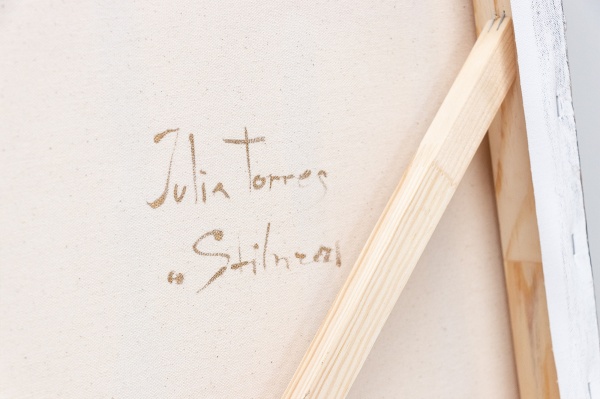 Julia Torres
„Stilness